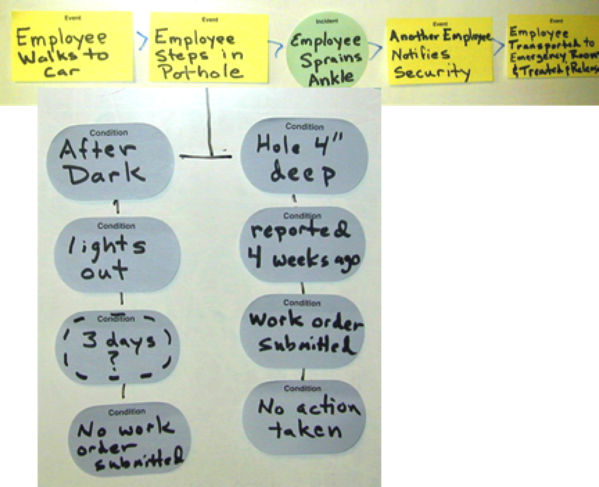 Event
Employee
Walks to
Car
Event
Employee
Steps in
Pothole
Incident
Employee
Sprains
Ankle
Event
Another Employee
Notifies
Security
Event
Employee
Transported to
Emergency Room
& Treated & Release
Condition
After
Dark
Condition
lights
out
Condition
3 days
?
Condition
No work
order
submitted
Condition
Hole 4"
deep
Condition
reported
4 weeks ago
Condition
Work order
submitted
Condition
No action
taken